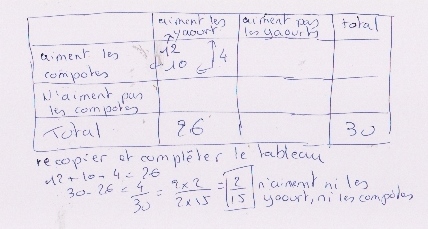 aiment les yaourt
aiment pas les yaourts
total
aiment les compotes
12
10
4
N'aiment pas les compotes
Total
26
30
recopier et compléter le tableau
12 + 10 + 4 = 26
30 - 26 = 4/30 = 2 x 2 / 2 x 15 = 2/15 n'aiment ni les
yaourt, ni les compotes